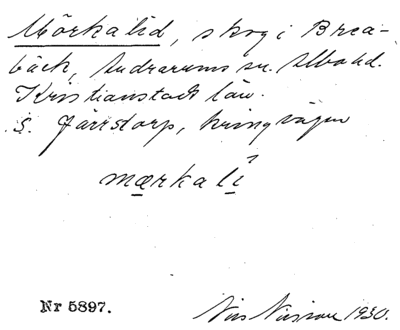 Mörkalid, skog i Brea-
bäck, Andrarums sn. Albo hd.
Kristianstads län.
S. Järstorp, kring vägen
mærkalì
Nr 5897.
Nils Nilsson 1930.